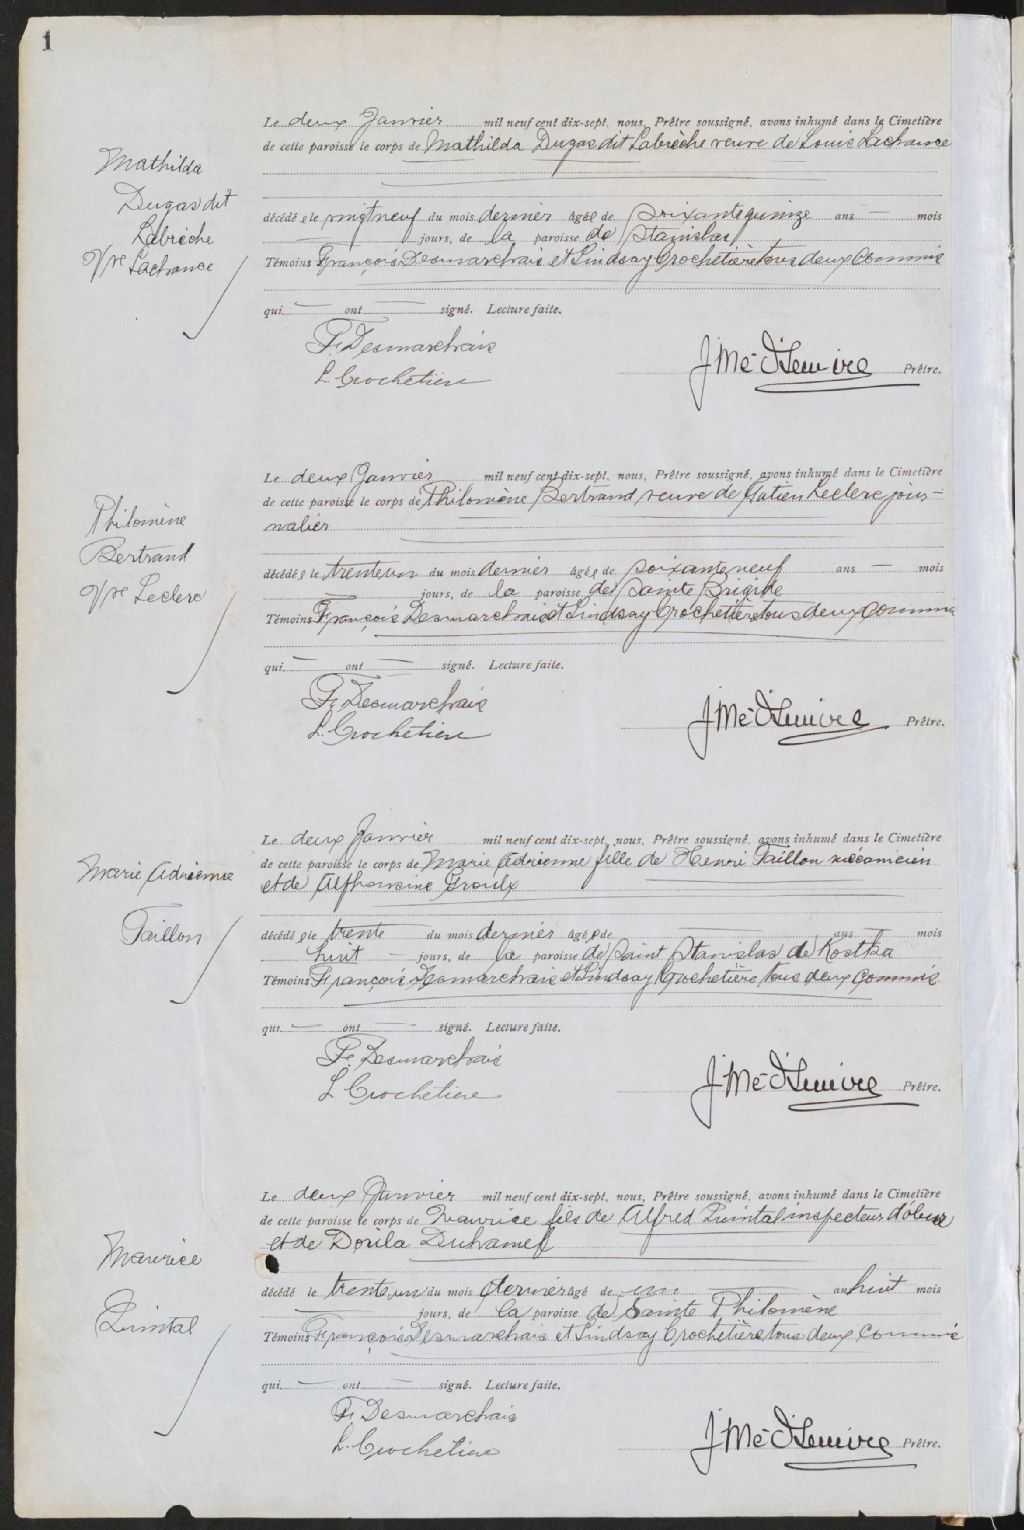 1
Mathilda
Dugas dit
Labrèche
Vve Lachance
Le deux Janvier mil neuf cent dix-sept, nous, Prêtre soussigné, avons inhumé dans le Cimetière
de cette paroisse le corps de Mathilda Dugas dit Labrèche veuve de Louis Lachance
décédée le vingt neuf du mois dernier âgée de soixante quinze ans — mois
— jours, de la paroisse de Stanislas
Témoins François Desmarchais et Lindsay Crochetière tous deux commis
qui — ont — signé. Lecture faite.
F. Desmarchais
L. Crochetiere
Prêtre.
Philomène
Bertrand
Vve Leclerc
Le deux Janvier mil neuf cent dix-sept, nous, Prêtre soussigné, avons inhumé dans le Cimetière
de cette paroisse le corps de Philomène Bertrand veuve de Gatien Leclerc jour-
nalier
décédée le trente un du mois dernier âgée de soixante neuf ans — mois
— jours, de la paroisse de Sainte Brigide
Témoins François Desmarchais et Lindsay Crochetière tous deux commis
qui — ont — signé. Lecture faite.
F. Desmarchais
L. Crochetiere
Prêtre.
Marie Adrienne
Taillon
Le deux Janvier mil neuf cent dix-sept, nous, Prêtre soussigné, avons inhumé dans le Cimetière
de cette paroisse le corps de Marie Adrienne fille de Henri Taillon mécanicien
et de Alphonsine Groulx
décédée le trente du mois dernier âgée de — ans — mois
huit — jours, de la paroisse de Saint Stanislas de Kostka
Témoins François Desmarchais et Lindsay Crochetière tous deux commis
qui — ont — signé. Lecture faite.
F. Desmarchais
L. Crochetiere
Prêtre.
Maurice
Quintal
Le deux Janvier mil neuf cent dix-sept, nous, Prêtre soussigné, avons inhumé dans le Cimetière
de cette paroisse le corps de Maurice fils de Alfred Quintal inspecteur d'obus
et de Doula Duhamel
décédé le trente un du mois dernier âgé de un an huit mois
— jours, de la paroisse de Sainte Philomène
Témoins François Desmarchais et Lindsay Crochetière tous deux commis
qui — ont — signé. Lecture faite.
F. Desmarchais
L. Crochetiere
Prêtre.